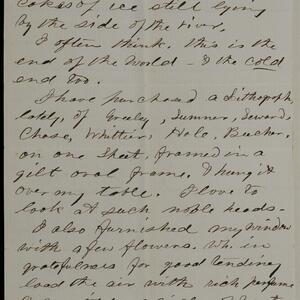 cakes of ice still lying
by the side of the river.
I often think, this is the
end of the world - & the cold
end too.
I have purchased a Lithograph,
lately, of Greely, Sumner, Seward,
Chase, Whittier, Hale, Beecher,
on one sheet, framed in a
gilt oval frame. I hung it
over my table. I love to
look at such noble heads -
I also furnished my window
with a few flowers. Wh. in
gratefulness for good tending
load the air with rich perfume